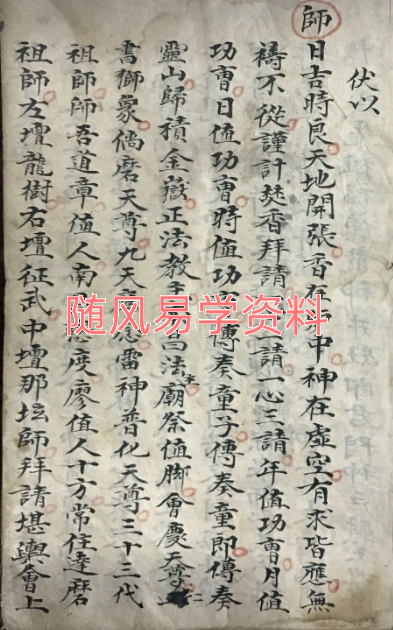 伏以
師
日吉時良天地開張香在中神在虛空有求皆應無
禱不從謹計焚香拜請一請一心三請年值功曹月值
功曹日值功曹時值功傳奏童子傳奏童即傳奏
靈山歸積金嶽正法教主法主廟祭值脚會慶天尊
書獅象儒磨天尊九天應雷神普化天尊三十三代
祖師師吾道章值人南度廖值人十方常住達磨
祖師左壇龍樹右壇征武中壇那坛師拜請堪輿會上
随风易学资料